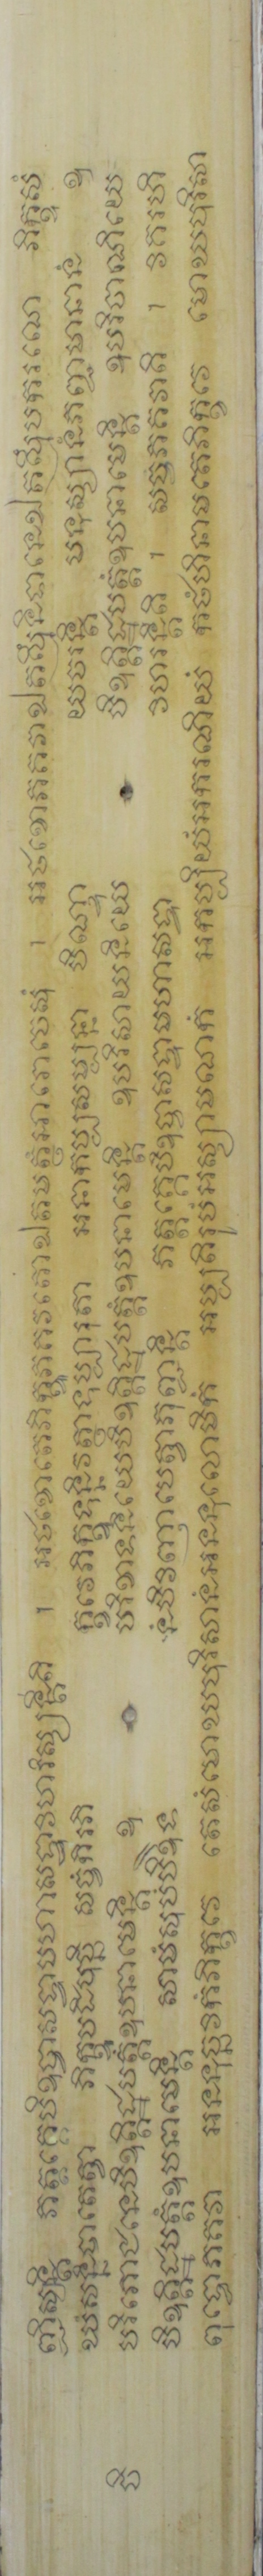 ញិស្សន្តិ ភត្តគ្គេបិឧច្ចាសទ្ទាមហាសទ្ទាវិហរិស្សន្តីតិ ។ អថខោតេភិក្ខូភគវតោឯតមត្ថំអារោចេសុំ ។ អថខោភគវាឯតស្មឹនិទានេឯតស្មឹបករណេ ភិក្ខុសំ
ឃំសន្និបាតេត្វា ភិក្ខូបដិបុច្ឆិ សច្ចំកិរភិ ក្ខវេភិក្ខូទុន្និវត្ថាទុប្បារុតា អនាកប្បសម្បន្នា បិណ្ឌា យចរន្តិ មនុស្សានំភុញ្ជមានានំ ឧ
បិ បរិភោជនេបិឧត្តិដ្ឋបត្តំឧបនាមេន្តិ ឧ បរិខាទនិយេបិឧត្តិដ្ឋបត្តំឧបនាមេន្តិ ឧបរិសាយនិយេ បិឧត្តិដ្ឋបត្តំឧបនាមេន្តិ ឧបរិបាណិយេ
បិឧត្តិដ្ឋបត្តំឧបនាមេន្តិ សាមំសូបំបិឱទ នំបិវិញ្ញាបេត្វាភុញ្ជន្តិ ភត្តគ្គេបិឧច្ចាសទ្ទាមហាសទ្ទា វិហរន្តីតិ ។ សច្ចំភគវាតិ ។ វិគរហិ
ពុទ្ធោភគវា អននុច្ឆវិកំភិក្ខវេ តេសំមោឃបុរិសានំអននុលោមិកំ អប្បតិរូបំអស្សាមណកំ អកប្បិយំអករណិយំ កថំហិនាមតេភិក្ខវេ មោឃបុរិសា